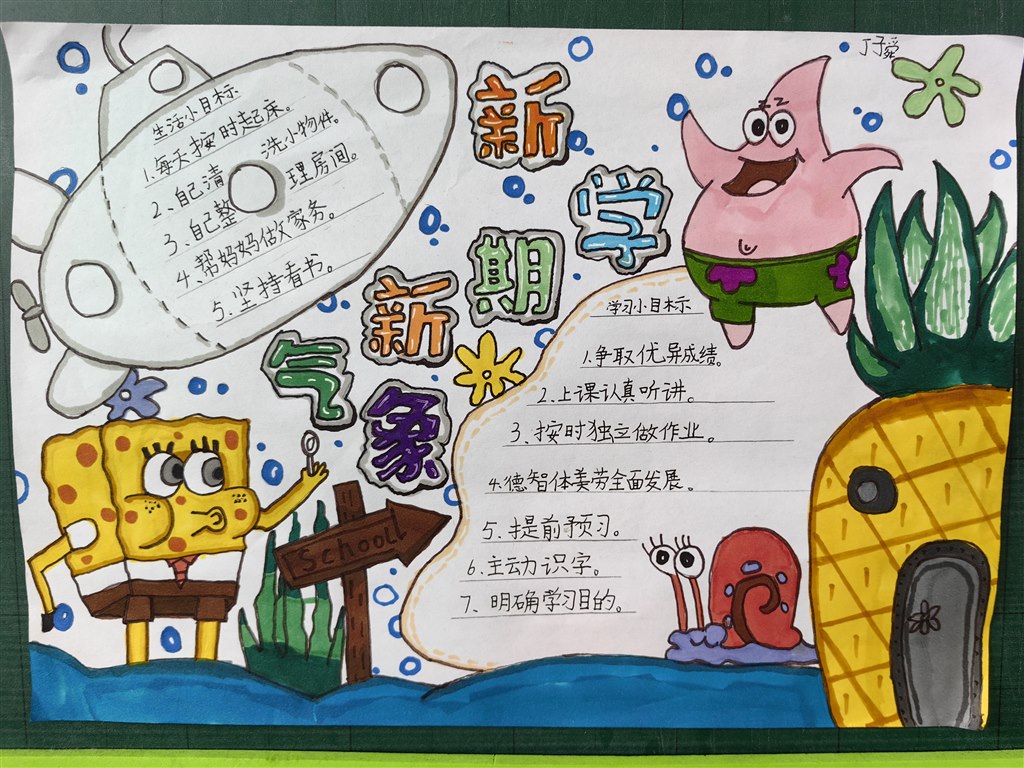 丁子舜
新学期新气象
生活小目标
1.每天按时起床。
2、自己清洗小物件。
3、自己整理房间。
4、帮妈妈做家务。
5、坚持看书。
学习小目标
1.争取优异成绩。
2.上课认真听讲。
3、按时独立做作业。
4.德智体美劳全面发展。
5、提前预习。
6、主动识字。
7、明确学习目的。
School